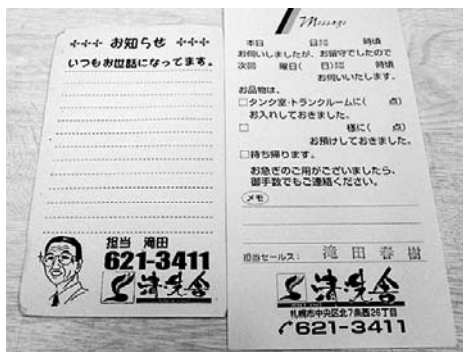 お知らせ
いつもお世話になってます。
担当 滝田
621-3411
清洗舎
Message
本日 日 時頃
お伺いしましたが、お留守でしたので
次回 曜日( 日) 時頃
お伺いいたします。
お品物は、
□タンク室・トランクルームに( 点)
お入れしておきました。
□ 様に( 点)
お預けしておきました。
□持ち帰ります。
お急ぎのご用がございましたら、
御手数でもご連絡ください。
メモ
担当セールス: 滝田春樹
清洗舎
札幌市中央区北7条西26丁目
621-3411